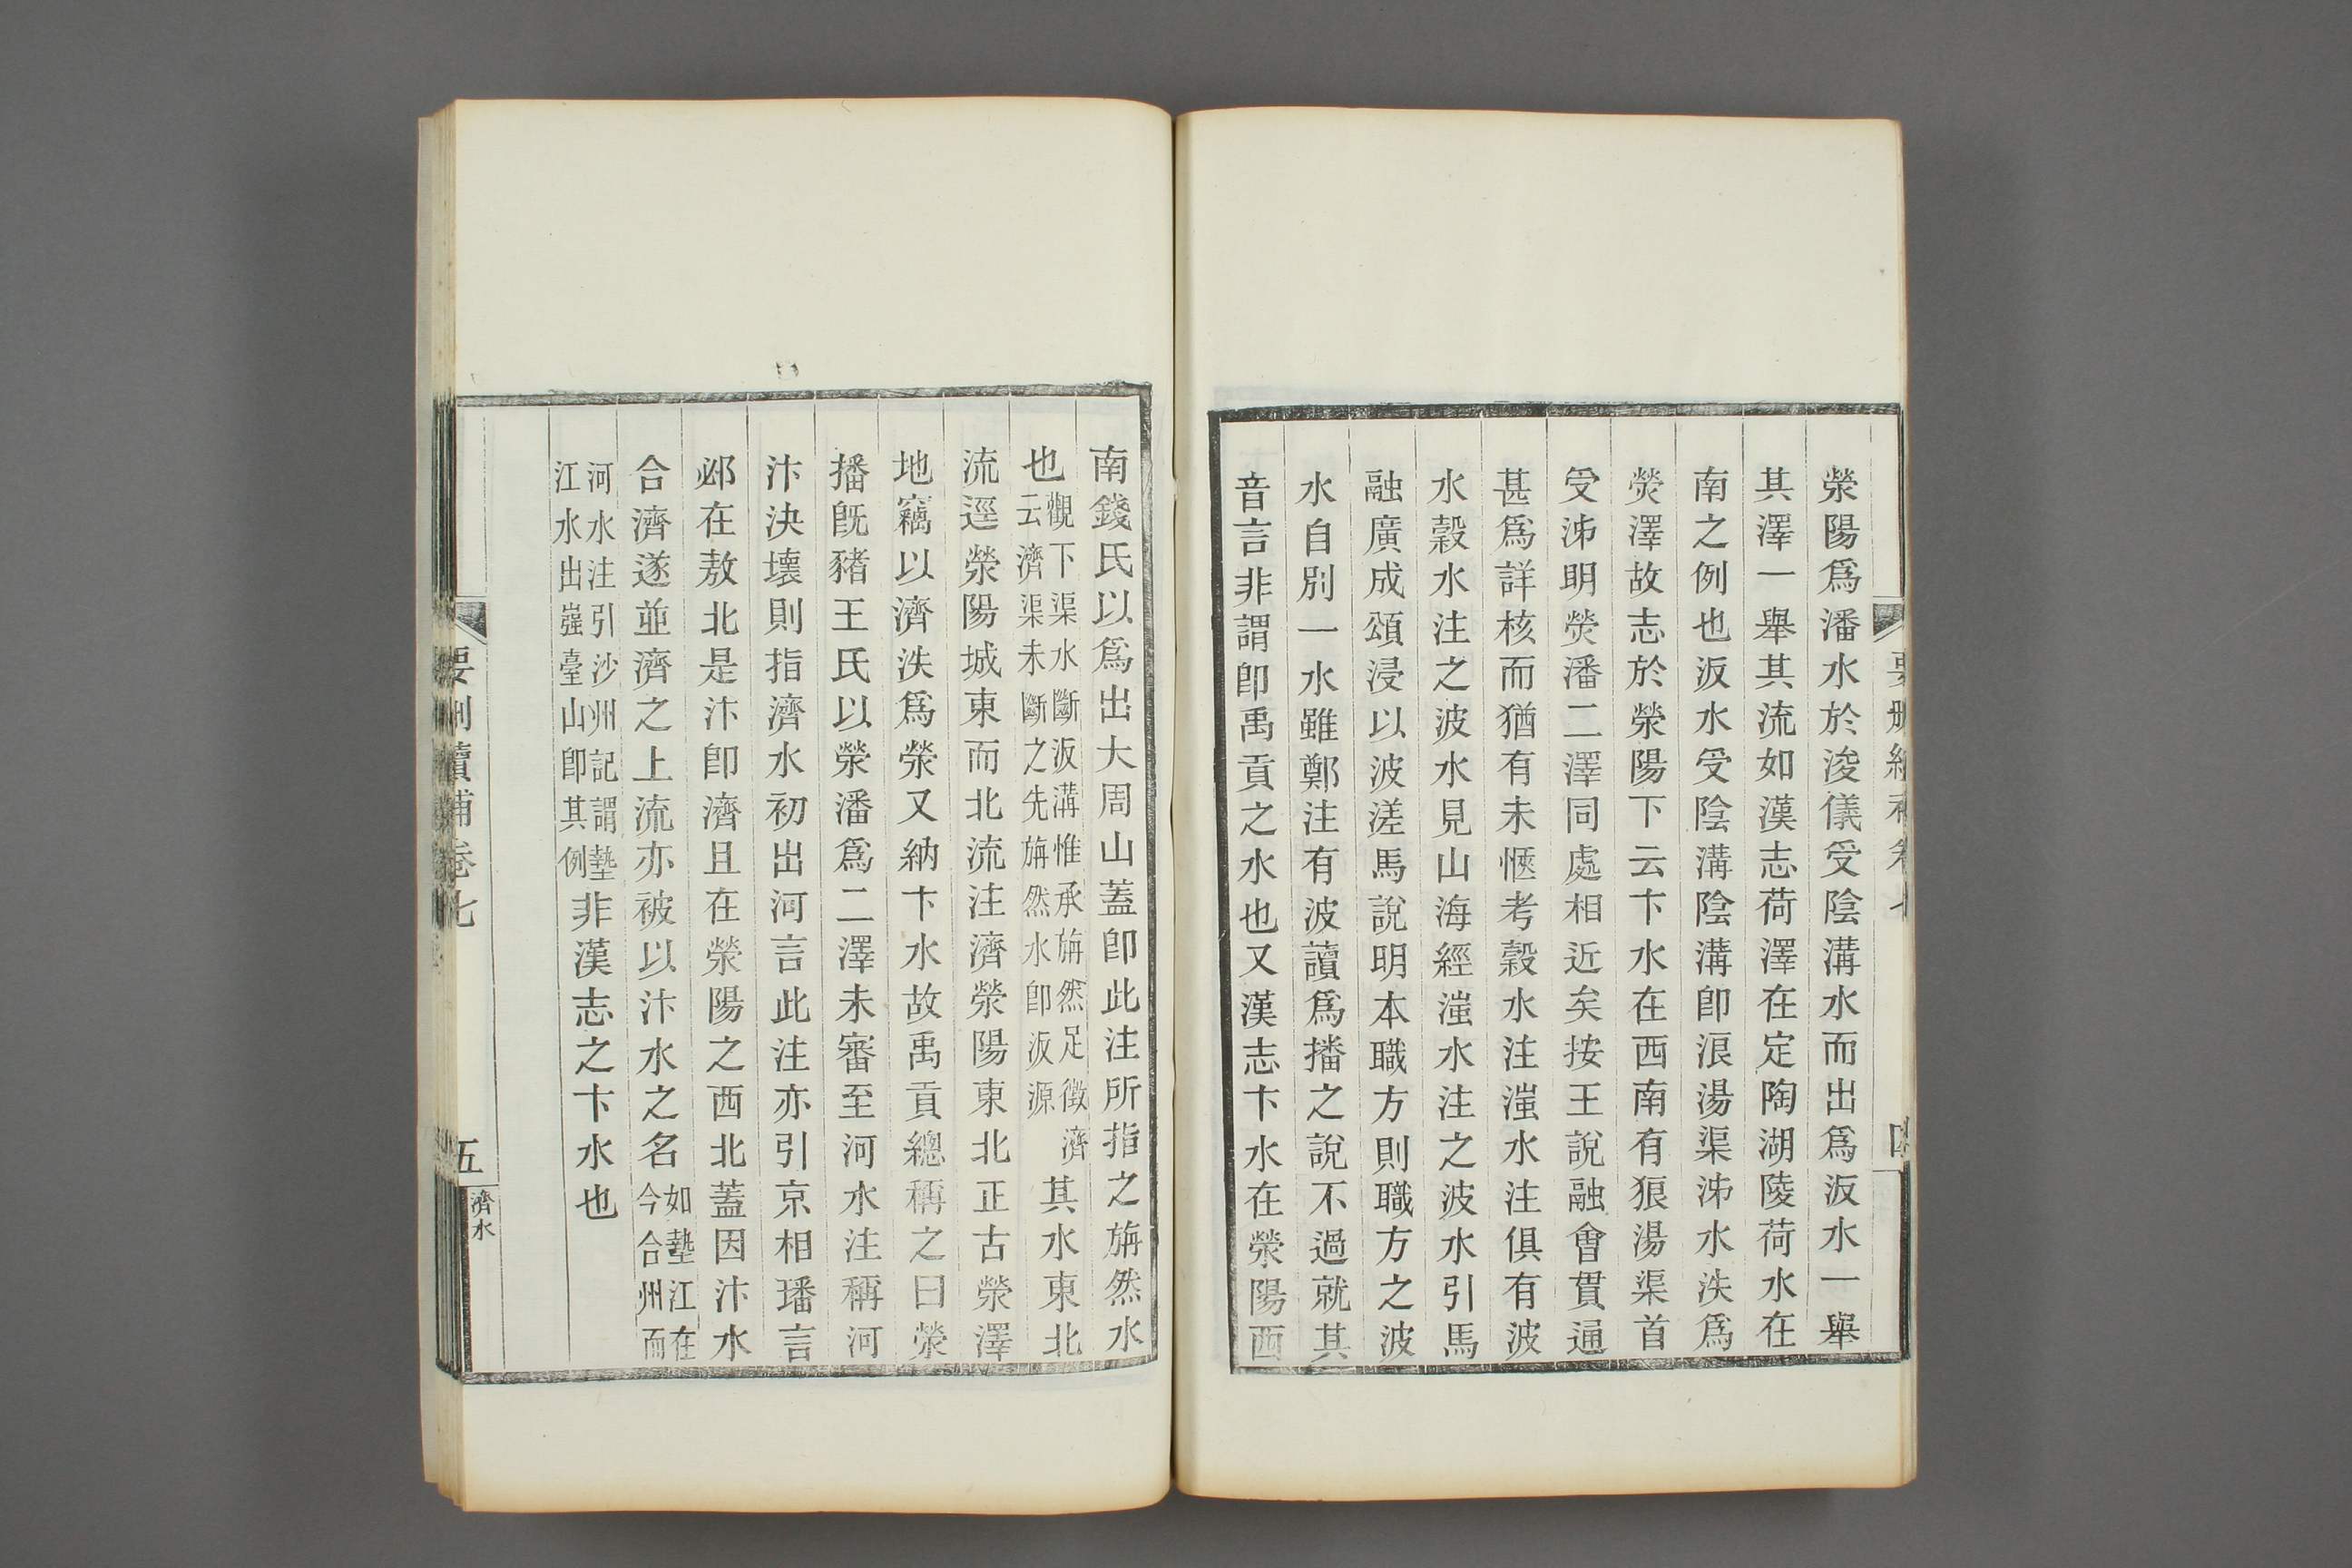 滎陽爲潘水於浚儀受陰溝水而出爲汳水一舉
其澤一舉其流如漢志荷澤在定陶湖陵荷水在
南之例也汳水受陰溝陰溝卽浪湯渠泲水泆爲
熒澤故志於滎陽下云卞水在西南有狼湯渠首
受泲明熒潘二澤同處相近矣按王說融會貫通
甚爲詳核而猶有未愜考穀水注𣽎水注俱有波
水穀水注之波水見山海經𣽎水注之波水引馬
融廣成頌浸以波溠馬說明本職方則職方之波
水自別一水雖鄭注有波讀爲播之說不過就其
音言非謂卽禹貢之水也又漢志卞水在滎陽西
南錢氏以爲出大周山蓋卽此注所指之旃然水
也觀下渠水斷汳溝惟承旃然足徵濟云濟渠未斷之先旃然水卽汳源其水東北
流逕滎陽城東而北流注濟滎陽東北正古滎澤
地竊以濟泆爲滎又納卞水故禹貢總稱之曰滎
播旣豬王氏以滎潘爲二澤未審至河水注稱河
汴決壞則指濟水初出河言此注亦引京相璠言
邲在敖北是汴卽濟且在滎陽之西北蓋因汴水
合濟遂並濟之上流亦被以汴水之名如墊江在今合州而
河水注引沙州記謂墊江水出嵹臺山卽其例非漢志之卞水也
要刪續補卷七
五
濟水